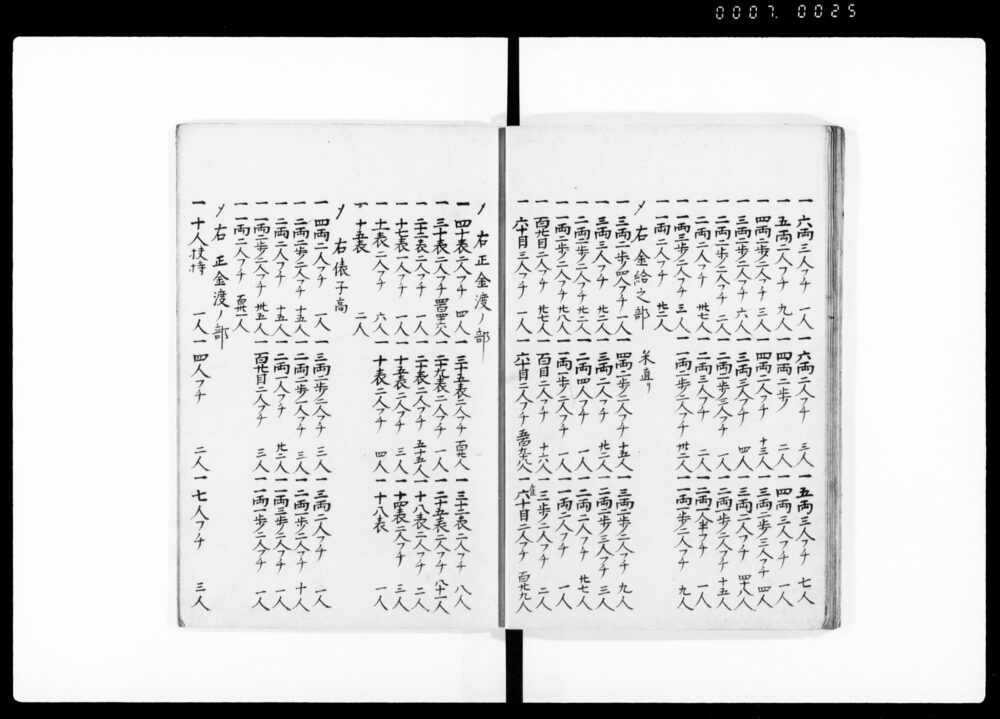 0007. 0025
一六両三人フチ 一人 一六両二人フチ 三人 一五両三人フチ 七人
一五両二人フチ 九人 一四両二歩 二人 一四両三人フチ 一人
一四両二歩二人フチ 三人 一四両二人フチ 十三人 一三両二歩三人フチ 四人
一三両二歩二人フチ 六人 一三両二人フチ 四人 一三両一歩二人フチ
一二両三歩二人フチ 二人 一二両二歩三人フチ 一人 一二両二歩二人フチ 十五人
一二両二人フチ 卅七人 一二両三人フチ 二人 一二両一人半フチ 一人
一一両三歩二人フチ 三人 一一両二歩二人フチ 卅二人 一一両一歩二人フチ 九人
一一両二人フチ 廿二人
〆右金給之部 米直り
一三両二歩四人フチ 一人 一四両二歩二人フチ 十五人 一三両二歩二人フチ 九人
一三両三人フチ 廿二人 一三両二人フチ 廿二人 一二両二歩三人フチ 三人
一二両二歩二人フチ 廿二人 一二両四人フチ 一人 一二両二人フチ 廿七人
一一両二歩二人フチ 廿八人 一一両一歩二人フチ 一人 一一両二人フチ 一人
一百九目二人フチ 廿七人 一百目二人フチ 十六人 一三歩二人フチ 二人
一六十目三人フチ 一人 一六十目二人フチ 一六十目二人フチ 百廿九人
〆右正金渡ノ部
一四十表二人フチ 四人 一三十五表二人フチ 百廿人 一三十二表二人フチ 八人
一三十表二人フチ 一二十九表二人フチ 一人 一二十五表二人フチ 八十一人
一二十二表二人フチ 一人 一二十表二人フチ 五十五人 一十八表二人フチ 二人
一十七表一人フチ 一人 一十五表二人フチ 三人 一十四表二人フチ 三人
一十一表二人フチ 六人 一十表二人フチ 四人 一十八表 一人
一十五表 二人
〆右俵子高
一四両二人フチ 一人 一三両二歩二人フチ 三人 一三両二人フチ 一人
一二両二歩二人フチ 十五人 一二両二歩一人フチ 三人 一二両一歩二人フチ 十人
一二両二人フチ 十五人 一二両一人フチ 廿二人 一一両三歩二人フチ 一人
一一両二歩二人フチ 卅五人 一百廿目二人フチ 三人 一一両一歩二人フチ 一人
一一両二人フチ
〆右正金渡ノ部
一十人扶持 一人 一四人フチ 二人 一七人フチ 三人